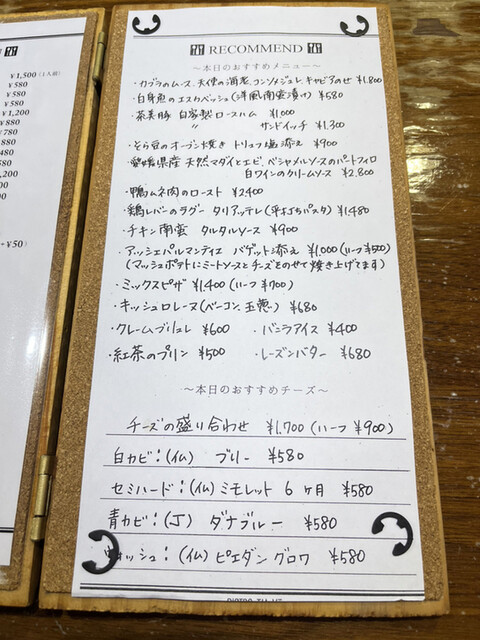 ¥1,500(1人前)
¥580
¥580
¥1,200
¥880
¥780
¥880
¥1,200
¥50)
RECOMMEND
〜本日のおすすめメニュー〜
・カブラのムース、天使の海老、コンソメジュレ、キャビアのせ ¥1.800
・白身魚のエスカベッシュ(洋風南蛮漬け) ¥580
・茶美豚 自家製ロースハム ¥1.000
〃 サンドイッチ ¥1.300
・そら豆のオーブン焼き トリュフ塩添え ¥900
・愛媛県産 天然マダイとエビ、ベシャメルソースのパートフィロ
白ワインのクリームソース ¥2.800
・鴨ムネ肉のロースト ¥2400
・鶏レバーのラグー タリアッテレ(平打ちパスタ) ¥1.480
・チキン南蛮 タルタルソース ¥900
・アッシェパルマンティエ バゲット添え ¥1.000(ハーフ¥500)
(マッシュポテトにミートソースとチーズをのせて焼き上げてます)
・ミックスピザ ¥1.400(ハーフ ¥700)
・キッシュロレーヌ(ベーコン、玉葱) ¥680
・クレームブリュレ ¥600 ・バニラアイス ¥400
・紅茶のプリン ¥500 ・レーズンバター ¥680
〜本日のおすすめチーズ〜
チーズの盛り合わせ ¥1.700(ハーフ ¥900)
白カビ:(仏) ブリー ¥580
セミハード:(仏)ミモレット 6ヶ月 ¥580
青カビ:(J) ダナブルー ¥580
ォッシュ:(仏)ピエダングロワ ¥580